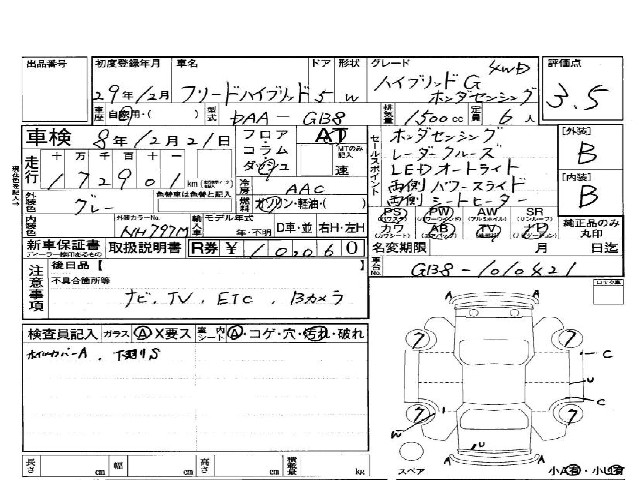 出品番号
初度登録年月 車名 ドア 形状 グレード 評価点
29年12月 フリードハイブリッド 5 W ハイブリッドG 4WD
ホンダセンシング
3.5
車歴 自家用・( ) 型式 DAA-GB8 排気量 1500cc 定員 6人
車検 8年12月21日 フロア AT
コラム MTのみ記入
ダッシュ 速
走行 十万千百十一
172901km
冷房 AAC
外装色 グレー 色替車は色替と記入
燃料 ガソリン・軽油・( )
内装色 外装カラーNo. NH797M 輸入車 モデル年式 年・不明 D車・並 右H・左H
新車保証書 取扱説明書 R券 ¥10260
セールスポイント
ホンダセンシング
レーダークルーズ
LEDオートライト
両側パワースライド
両側シートヒーター
[外装]
B
[内装]
B
PS PW AW SR
カワ AB TV ナビ
純正品のみ丸印
名変期限 月 日迄
車台No. GB8-1010421
注意事項 後日品【 】
不具合箇所等
ナビ、TV、ETC、Bカメラ
検査員記入 ガラス A X要ス 室内シート A・コゲ・穴・汚れ・破れ
ホイールカバーA、下廻りS
長さ cm 幅 cm 高さ cm 積載量 kg
7 7 C
U
C
7 7
W U
A A A A
スペア